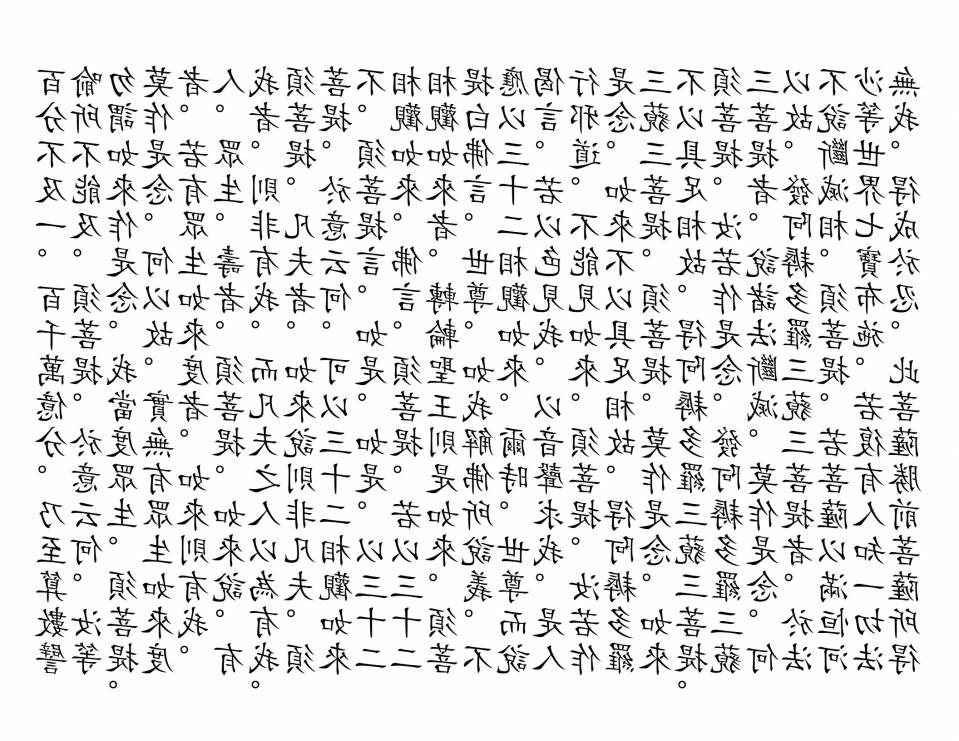 百分不及一。百千萬億分。乃至算數譬
喻所不能及。須菩提。於意云何。汝等
勿謂如來作是念。我當度眾生。須菩提。
莫作是念。何以故。實無有眾生如來度
者。若有眾生如來度者。如來則有我。
人。眾生壽者。須菩提。如來說。有
我者。則非有我。而凡夫之人以為有我。
須菩提。凡夫者。如來說則非凡夫。須
菩提。於意云何。可以三十二相觀如來
不。須菩提言。如是如是。以三十二
相觀如來。佛言。須菩提。若以三十二
相觀如來者。轉輪聖王則是如來。須菩
提白佛言。世尊。如我解佛所說義。不
應以三十二相觀如來。爾時世尊。而說
偈言。若以色見我。以音聲求我。是人
行邪道。不能見如來。須菩提。汝若作
是念。如來不以具足相。故得阿耨多羅
三藐三菩提。須菩提。莫作是念。如來
不以具足相。故得阿耨多羅三藐三菩提。
須菩提。汝若作是念。發阿耨多羅三藐
三菩提者。說諸法斷滅。莫作是念。何
以故。發阿耨多羅三藐三菩提者。於法
不說斷滅相。須菩提。若菩薩以滿恒河
沙等世界七寶布施。若復有人知一切法
無我。得成於忍。此菩薩勝前菩薩所得